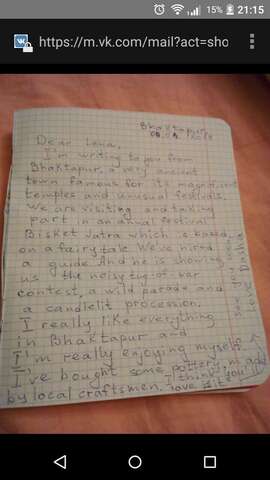 15% 21:15
https://m.vk.com/mail?act=sho
Bhaktapur
Dear Lena,
I'm writing to you from
Bhaktapur, a very ancient
town famous for its magnificient
temples and unusual festivals.
We are visiting and taking
part in an annual festival
Bisket Jatra which is based
on a fairy tale. We've hired
a guide. And he is showing
us the noisy tug-of-war
contest, a wild parade and
a candlelit procession.
I really like everything
in Bhaktapur and
I'm really enjoying myself.
I've bought some pottery made
by local craftsmen. I think you'll
love it